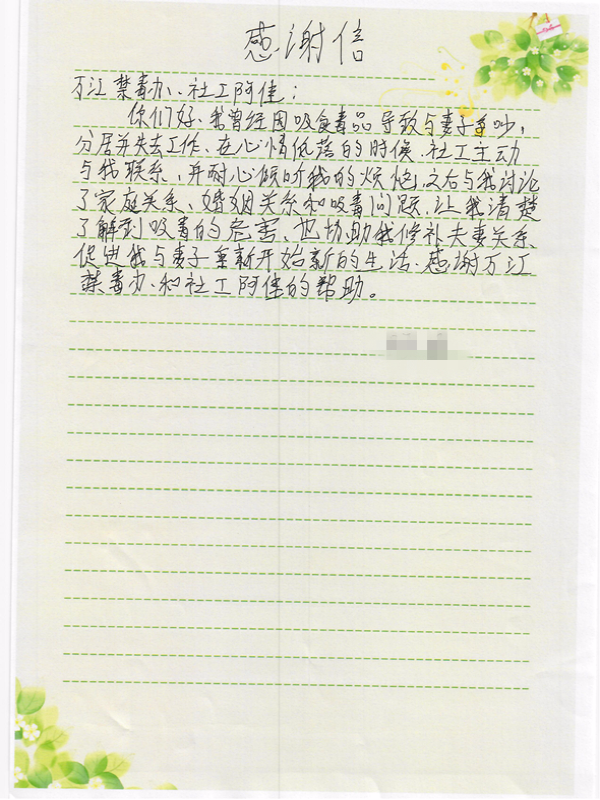 感谢信
万江禁毒办、社工阿佳：
你们好、我曾经因吸食毒品导致与妻子争吵，
分居并失去工作、在心情低落的时候、社工主动
与我联系、并耐心倾听我的烦恼、之后与我讨论
了家庭关系、婚姻关系和吸毒问题、让我清楚
了解到吸毒的危害、也协助我修补夫妻关系、
促进我与妻子重新开始新的生活、感谢万江
禁毒办、和社工阿佳的帮助。